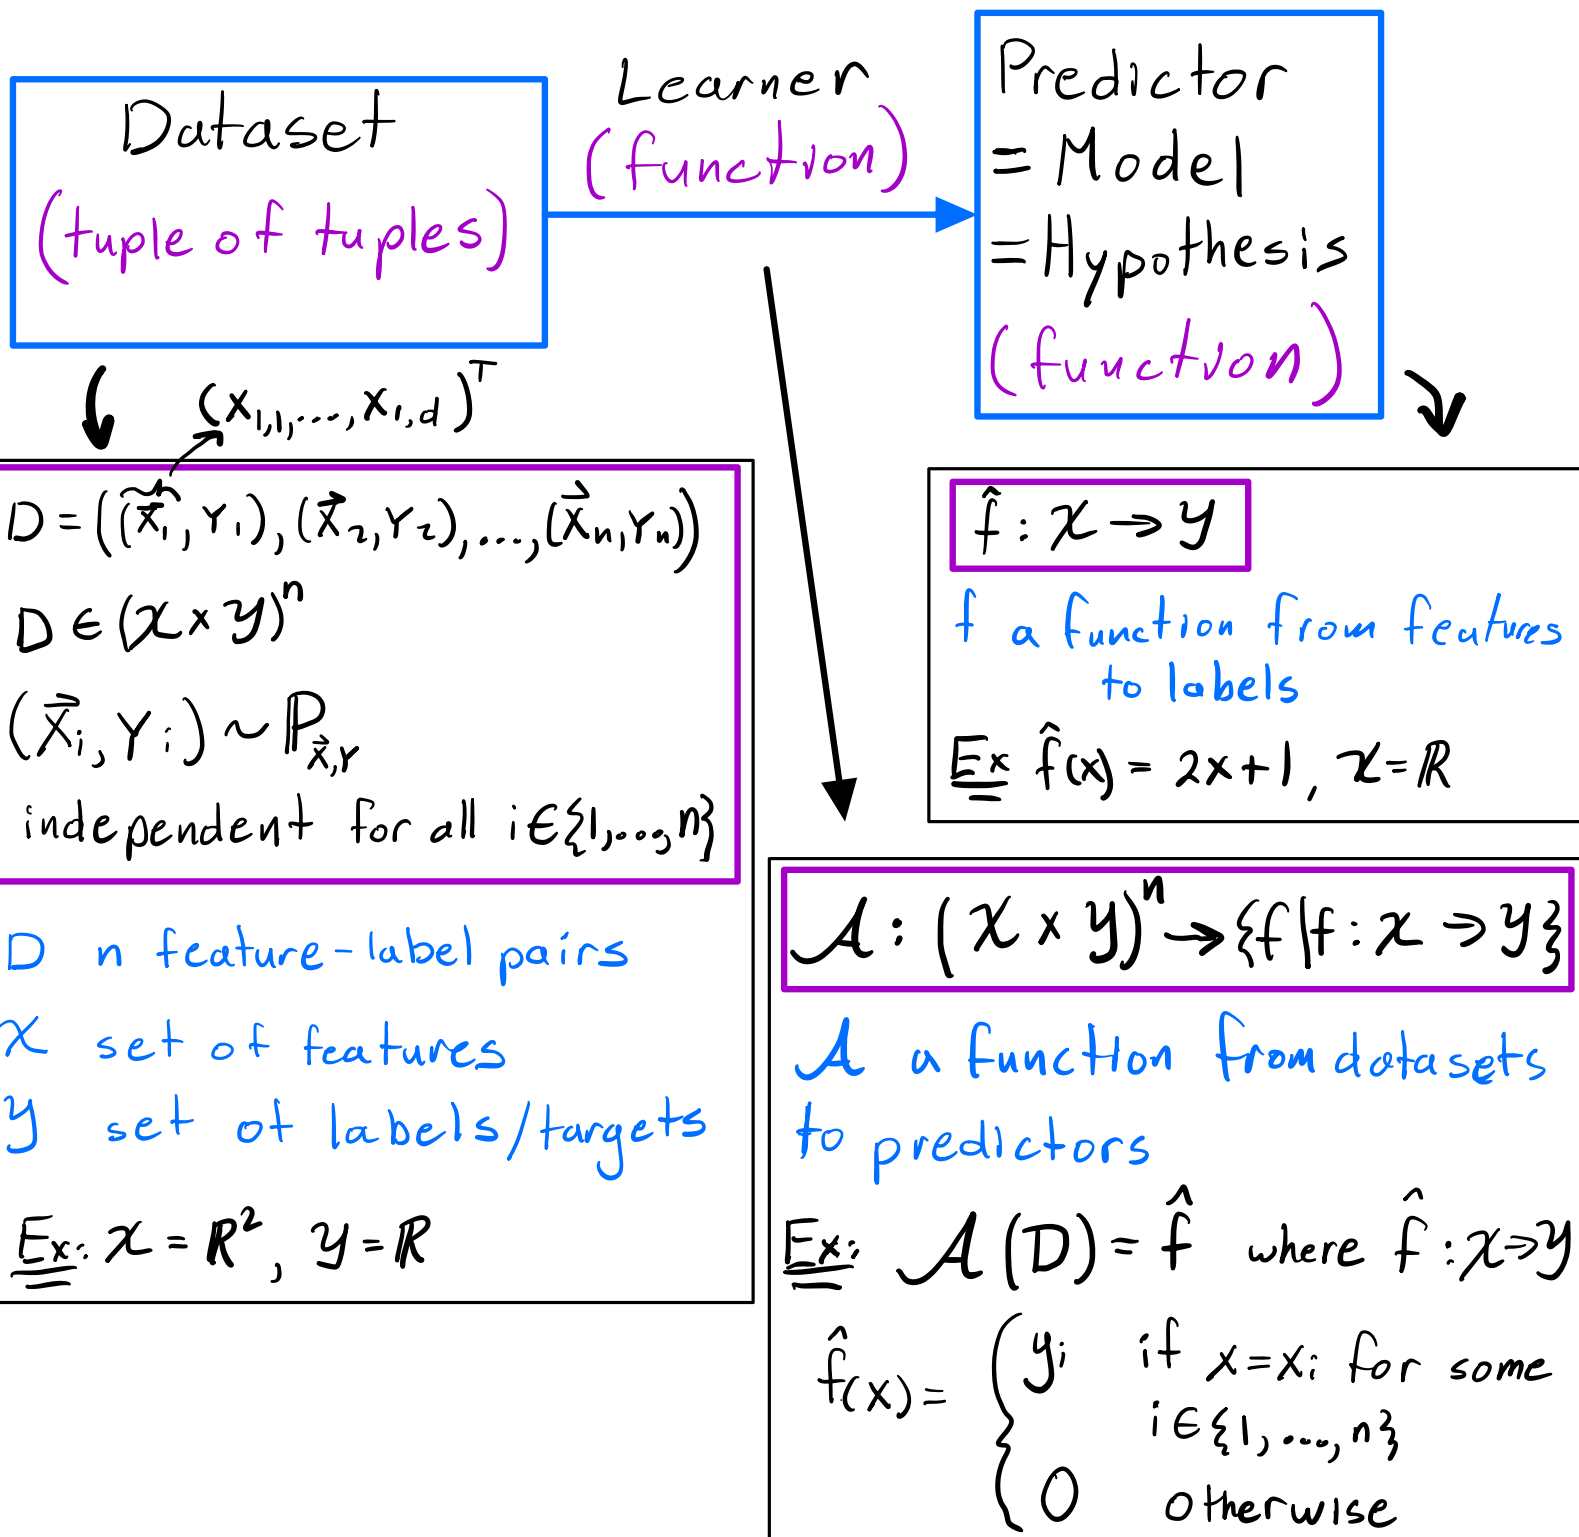 Dataset
(tuple of tuples)
Learner
(function)
Predictor
= Model
= Hypothesis
(function)
(x₁,₁,...,x₁,d)ᵀ
D = ((X⃗₁, Y₁), (X⃗₂, Y₂), ..., (X⃗ₙ, Yₙ))
D ∈ (𝒳 × 𝒴)ⁿ
(X⃗ᵢ, Yᵢ) ~ ℙ_X⃗,Y
independent for all i∈{1,...,n}
D n feature-label pairs
𝒳 set of features
𝒴 set of labels/targets
Ex: 𝒳 = ℝ², 𝒴 = ℝ
f̂ : 𝒳 → 𝒴
f a function from features
to labels
Ex f̂(x) = 2x+1, 𝒳 = ℝ
𝒜 : (𝒳 × 𝒴)ⁿ → {f | f : 𝒳 → 𝒴}
𝒜 a function from datasets
to predictors
Ex: 𝒜(D) = f̂ where f̂ : 𝒳 → 𝒴
f̂(x) = { yᵢ if x=xᵢ for some
i∈{1,...,n}
0 otherwise